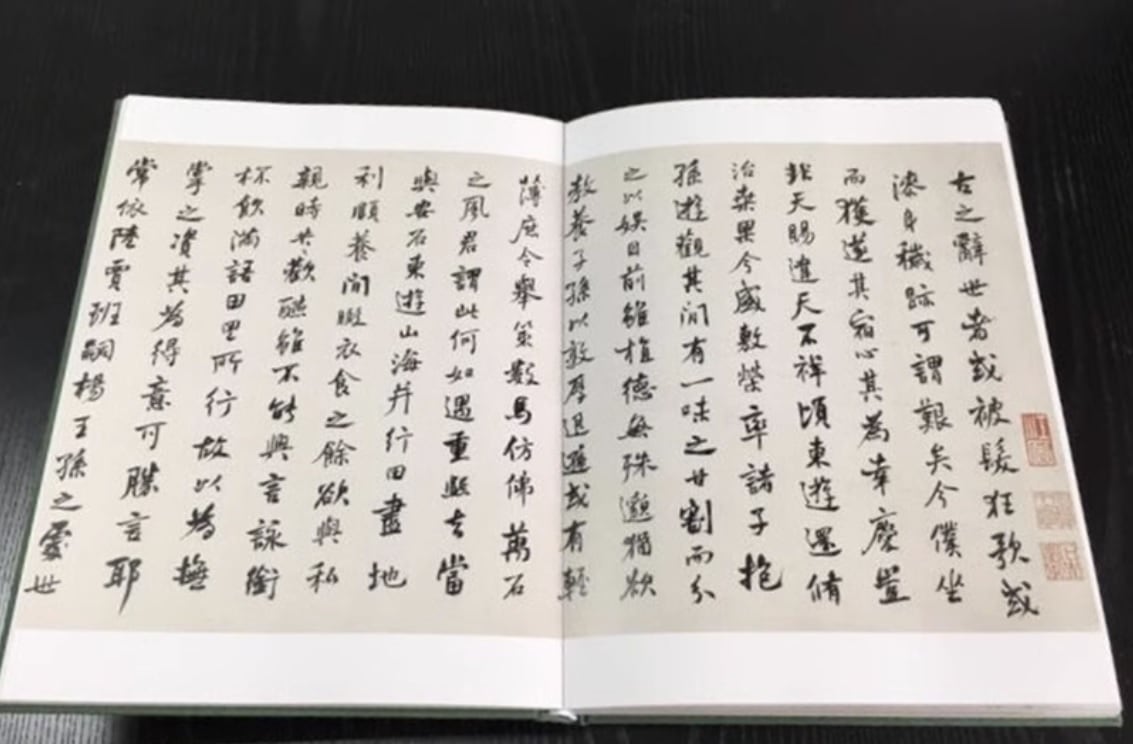 古之辭世者或被髮狂歌或
漆身穢跡可謂艱矣今僕坐
而獲遂其宿心其為幸慶豈
非天賜違天不祥頃東遊還脩
治桑果今盛敷榮率諸子抱
孫遊觀其間有一味之甘割而分
之以娛目前雖植德無殊邈猶欲
教養子孫以敦厚退遜或有輕
薄庶令舉策數馬仿佛萬石
之風君謂此何如遇重熙去當
與安石東遊山海并行田盡地
利頤養閒暇衣食之餘欲與私
親時共歡醼雖不能與言詠銜
杯飲滿語田里所行故以為撫
掌之資其為得意可勝言耶
常依陸賈班嗣楊王孫之處世